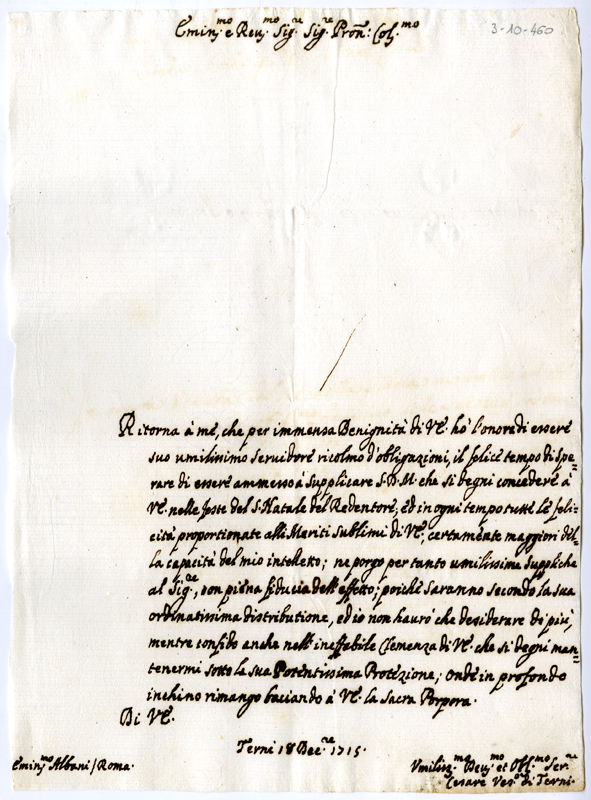 Eminj.mo e Reuj.mo Sig.re Sig.re Pron̄: Col.mo
3-10-460
Ritorna à me, che per immensa Benignità di VE. hò l'onore di essere
suo umilissimo seruidore ricolmo d'obligazioni, il felice tempo di spe=
rare di essere ammesso à supplicare S.D.M. che si degni concedere à
VE. nelle feste del S. Natale del Redentore, ed in ogni tempo tutte le feli=
cità proportionate alli Meriti sublimi di VE., certamente maggiori del=
la capacità del mio intelletto; ne porgo per tanto umilissime suppliche
al Sig.re, con piena fiducia dell'effetto; poiche saranno secondo la sua
ordinatissima distributione, ed io non haurò che desiderare di più,
mentre confido anche nell'ineffabile Clemenza di VE. che si degni man=
tenermi sotto la sua Potentissima Protezione; Onde in profondo
inchino rimango baciando à VE. la Sacra Porpora.
Di VE.
Terni 18 Dec.re 1715.
Eminj.mo Albani / Roma.
Vmiliss.mo Deuj.mo et Obl.mo Ser.re
Cesare Ves.o di Terni.